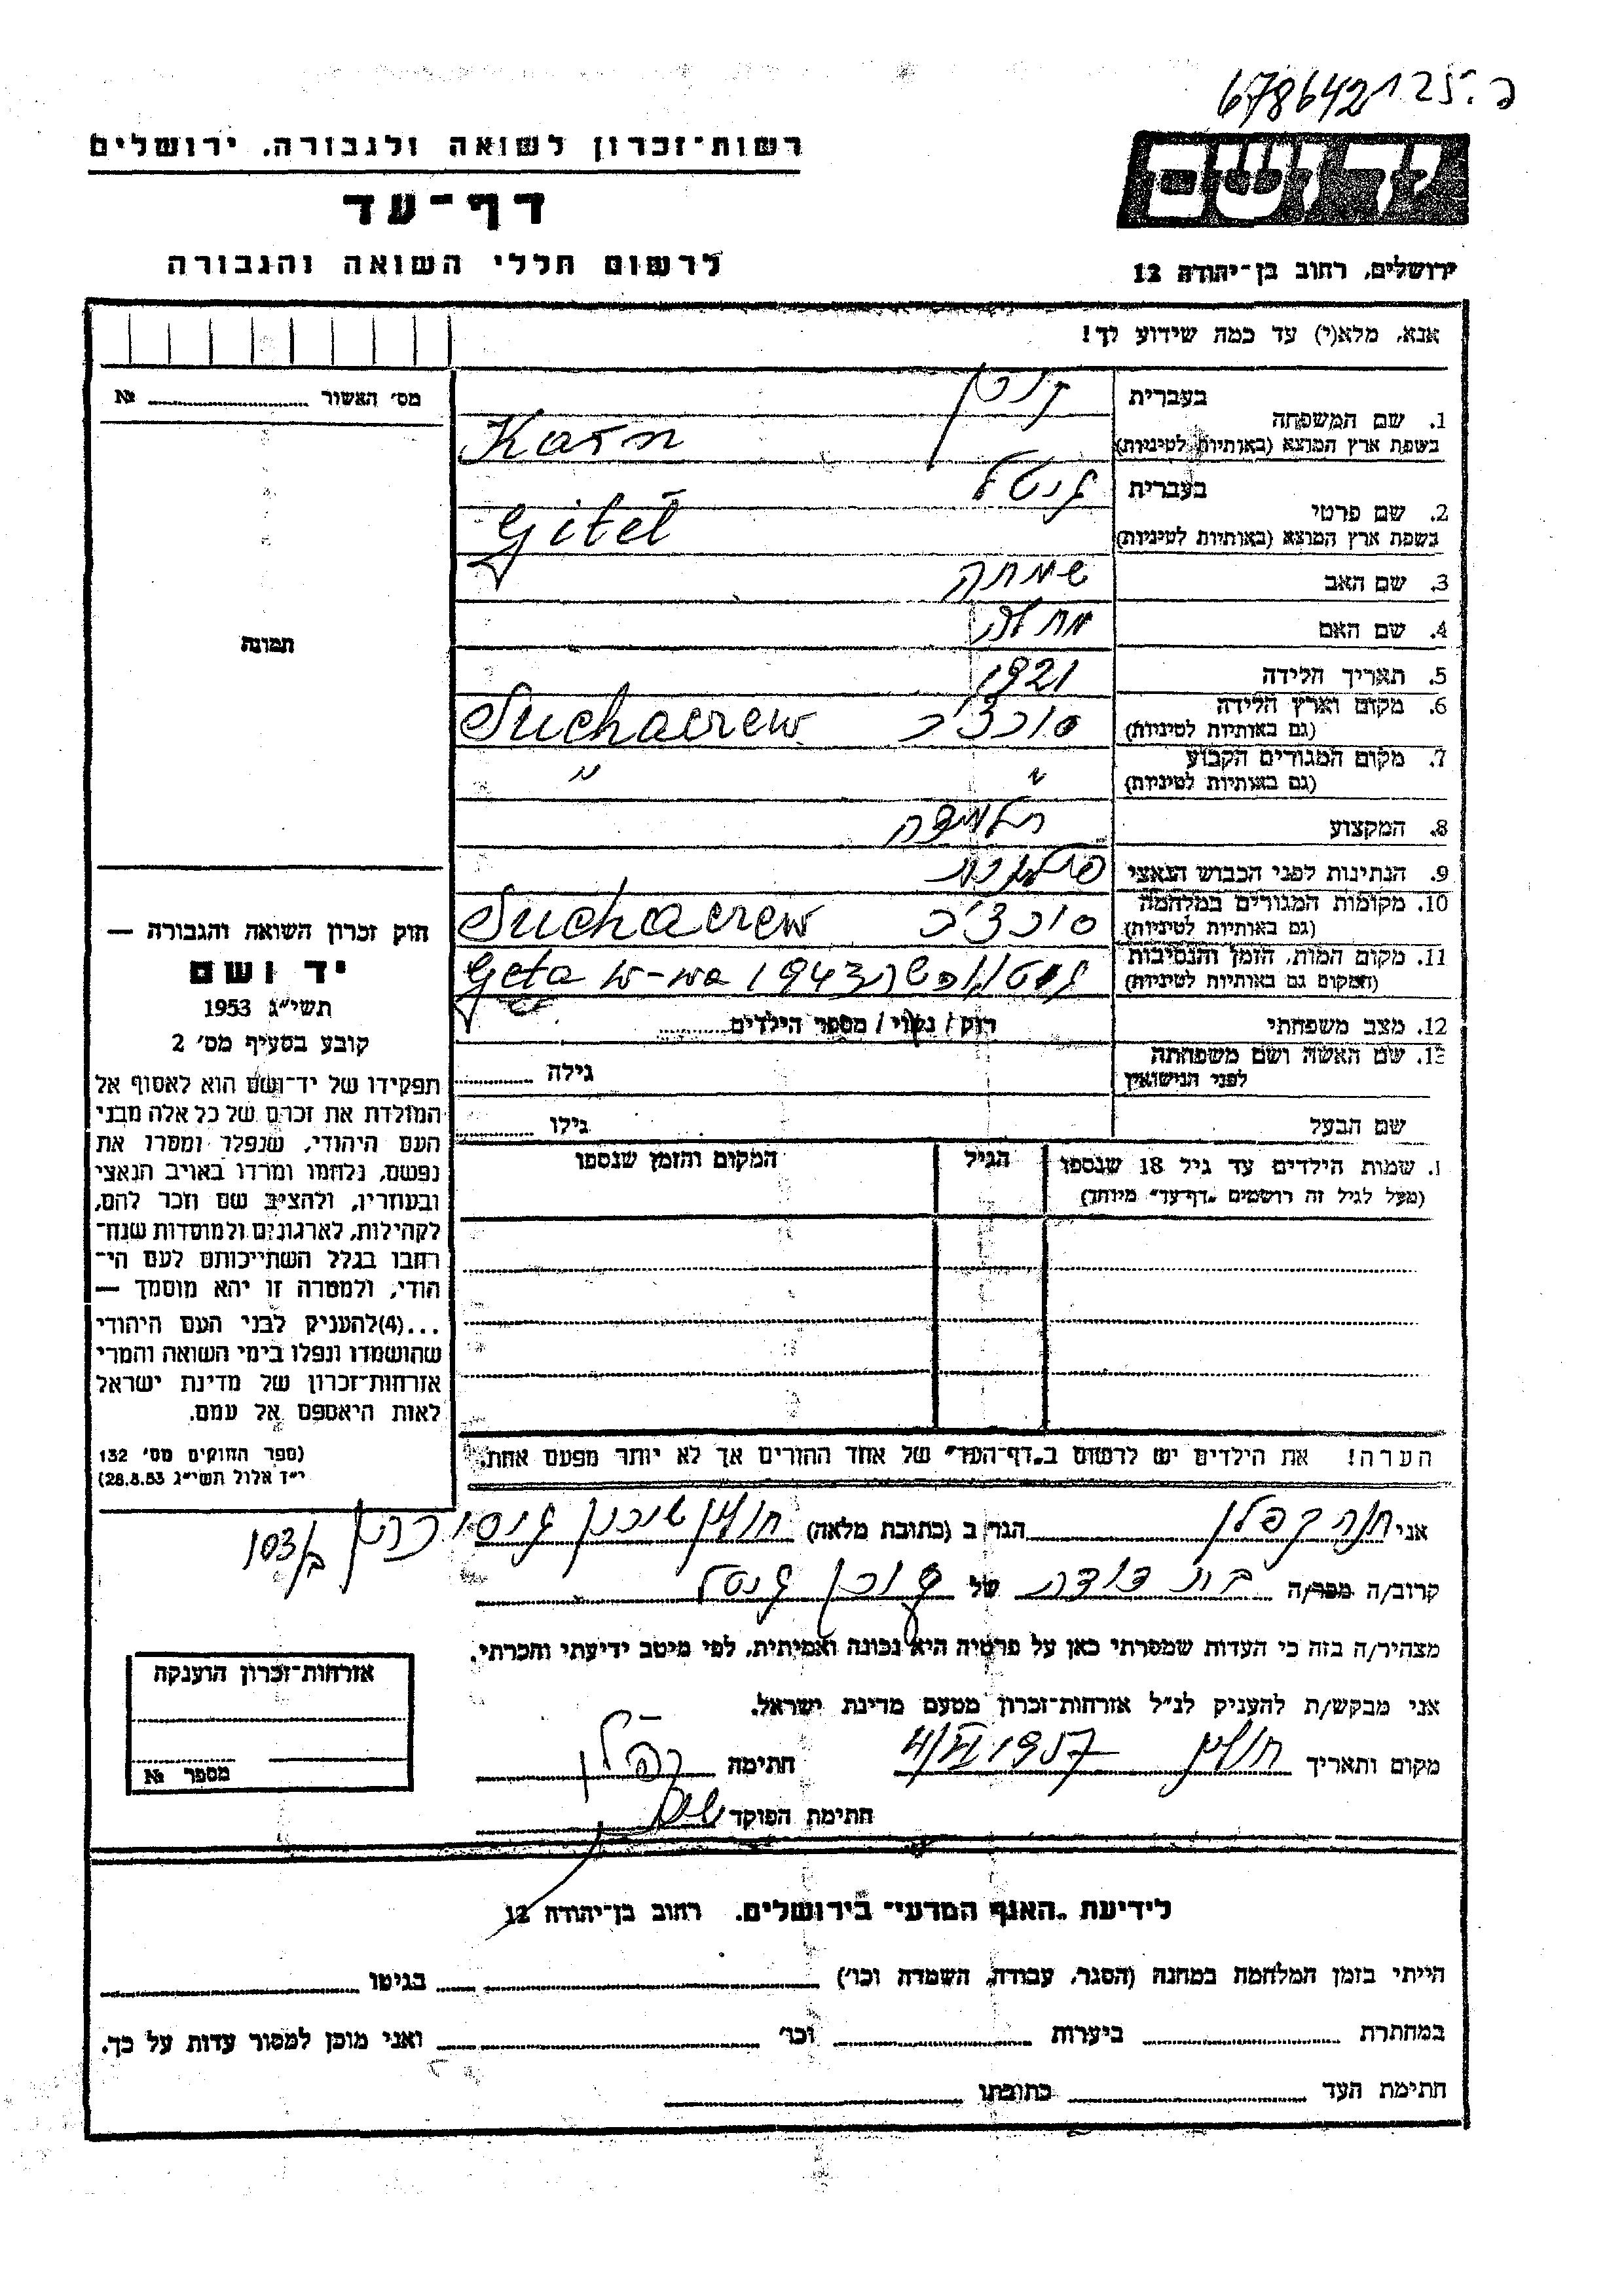 678642 125.כ
רשות־זכרון לשואה ולגבורה, ירושלים
דף־עד
לרשום חללי השואה והגבורה
ידושם
ירושלים, רחוב בן־יהודה 12
אנא, מלא(י) עד כמה שידוע לך!
מס׳ האשור № 
תמונה
חוק זכרון השואה והגבורה —
יד ושם
תשי״ג 1953
קובע בסעיף מס׳ 2
תפקידו של יד־ושם הוא לאסוף אל
המולדת את זכרם של כל אלה מבני
העם היהודי, שנפלו ומסרו את
נפשם, נלחמו ומרדו באויב הנאצי
ובעוזריו, ולהציב שם וזכר להם,
לקהילות, לארגונים ולמוסדות שנח־
רחבו בגלל השתייכותם לעם הי־
הודי, ולמטרה זו יהא מוסמך —
...(4)להעניק לבני העם היהודי
שהושמדו ונפלו בימי השואה והמרי
אזרחות־זכרון של מדינת ישראל
לאות היאספם אל עמם.
(ספר החוקים מס׳ 132
י״ד אלול תשי״ג 28.8.53)
בעברית
1. שם המשפחה
בשפת ארץ המוצא (באותיות לטיניות) Karn
בעברית גיטל
2. שם פרטי
בשפת ארץ המוצא (באותיות לטיניות) Gitel
3. שם האב שמחה
4. שם האם
5. תאריך הלידה 1921
6. מקום וארץ הלידה סוכצ׳ב Suchacrew
(גם באותיות לטיניות)
7. מקום המגורים הקבוע " "
(גם באותיות לטיניות)
8. המקצוע תלמידה
9. הנתינות לפני הכבוש הנאצי פולנית
10. מקומות המגורים במלחמה סוכצ׳ב Suchacrew
(גם באותיות לטיניות)
11. מקום המות, הזמן והנסיבות 1943 Geta w-wa
(המקום גם באותיות לטיניות)
12. מצב משפחתי רוק / נשוי / מספר הילדים
13. שם האשה ושם משפחתה גילה
לפני הנישואין
שם הבעל גילו
ו. שמות הילדים עד גיל 18 שנספו הגיל המקום והזמן שנספו
(מעל לגיל זה רושמים „דף־עד״ מיוחד)
הערה! את הילדים יש לרשום ב„דף־העד״ של אחד ההורים אך לא יותר מפעם אחת.
אני חנה קפלן הגר ב (כתובת מלאה) חולון שיכון 103/ב
קרוב/ה מכר/ה בת דודה של גיטל
מצהיר/ה בזה כי העדות שמסרתי כאן על פרטיה היא נכונה ואמיתית, לפי מיטב ידיעתי והכרתי.
אני מבקש/ת להעניק לנ״ל אזרחות־זכרון מטעם מדינת ישראל.
מקום ותאריך חולון 4/VI 1957 חתימה קפלן
חתימת הפוקד
אזרחות־זכרון הוענקה
מספר №
לידיעת „האגף המדעי״ בירושלים, רחוב בן־יהודה 12
הייתי בזמן המלחמה במחנה (הסגר, עבודה, השמדה וכו׳) בגיטו
במחתרת ביערות וכו׳ ואני מוכן למסור עדות על כך.
חתימת העד כתובתו